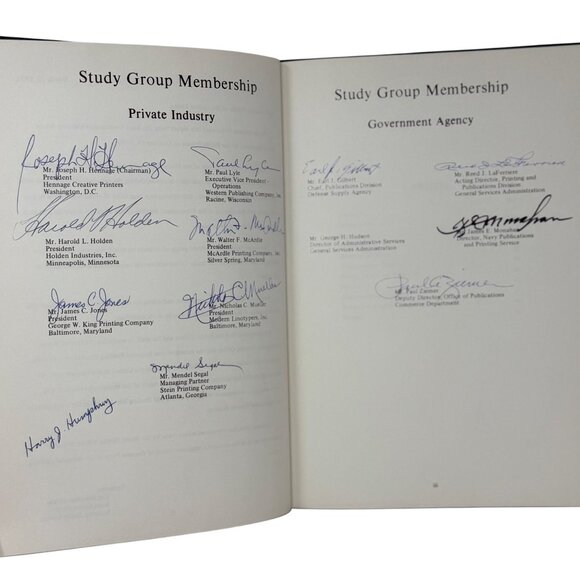 Study Group Membership
Private Industry
Joseph H. Hennage
Mr. Joseph H. Hennage (Chairman)
President
Hennage Creative Printers
Washington, D.C.
Paul Lyle
Mr. Paul Lyle
Executive Vice President -
Operations
Western Publishing Company, Inc.
Racine, Wisconsin
Harold L. Holden
Mr. Harold L. Holden
President
Holden Industries, Inc.
Minneapolis, Minnesota
Mr. Walter F. McArdle
President
McArdle Printing Company, Inc.
Silver Spring, Maryland
James C. Jones
Mr. James C. Jones
President
George W. King Printing Company
Baltimore, Maryland
Nicholas C. Mueller
Mr. Nicholas C. Mueller
President
Modern Linotypers, Inc.
Baltimore, Maryland
Mendel Segal
Mr. Mendel Segal
Managing Partner
Stein Printing Company
Atlanta, Georgia
Harry J. Humphrey
Study Group Membership
Government Agency
Mr. Earl J. Gilbert
Chief, Publications Division
Defense Supply Agency
Mr. Reed J. LaFerriere
Acting Director, Printing and
Publications Division
General Services Administration
Mr. George H. Hudson
Director of Administrative Services
General Services Administration
Mr. James E. Monahan
Director, Navy Publications
and Printing Service
Paul A. Ziemer
Mr. Paul Ziemer
Deputy Director, Office of Publications
Commerce Department
iii